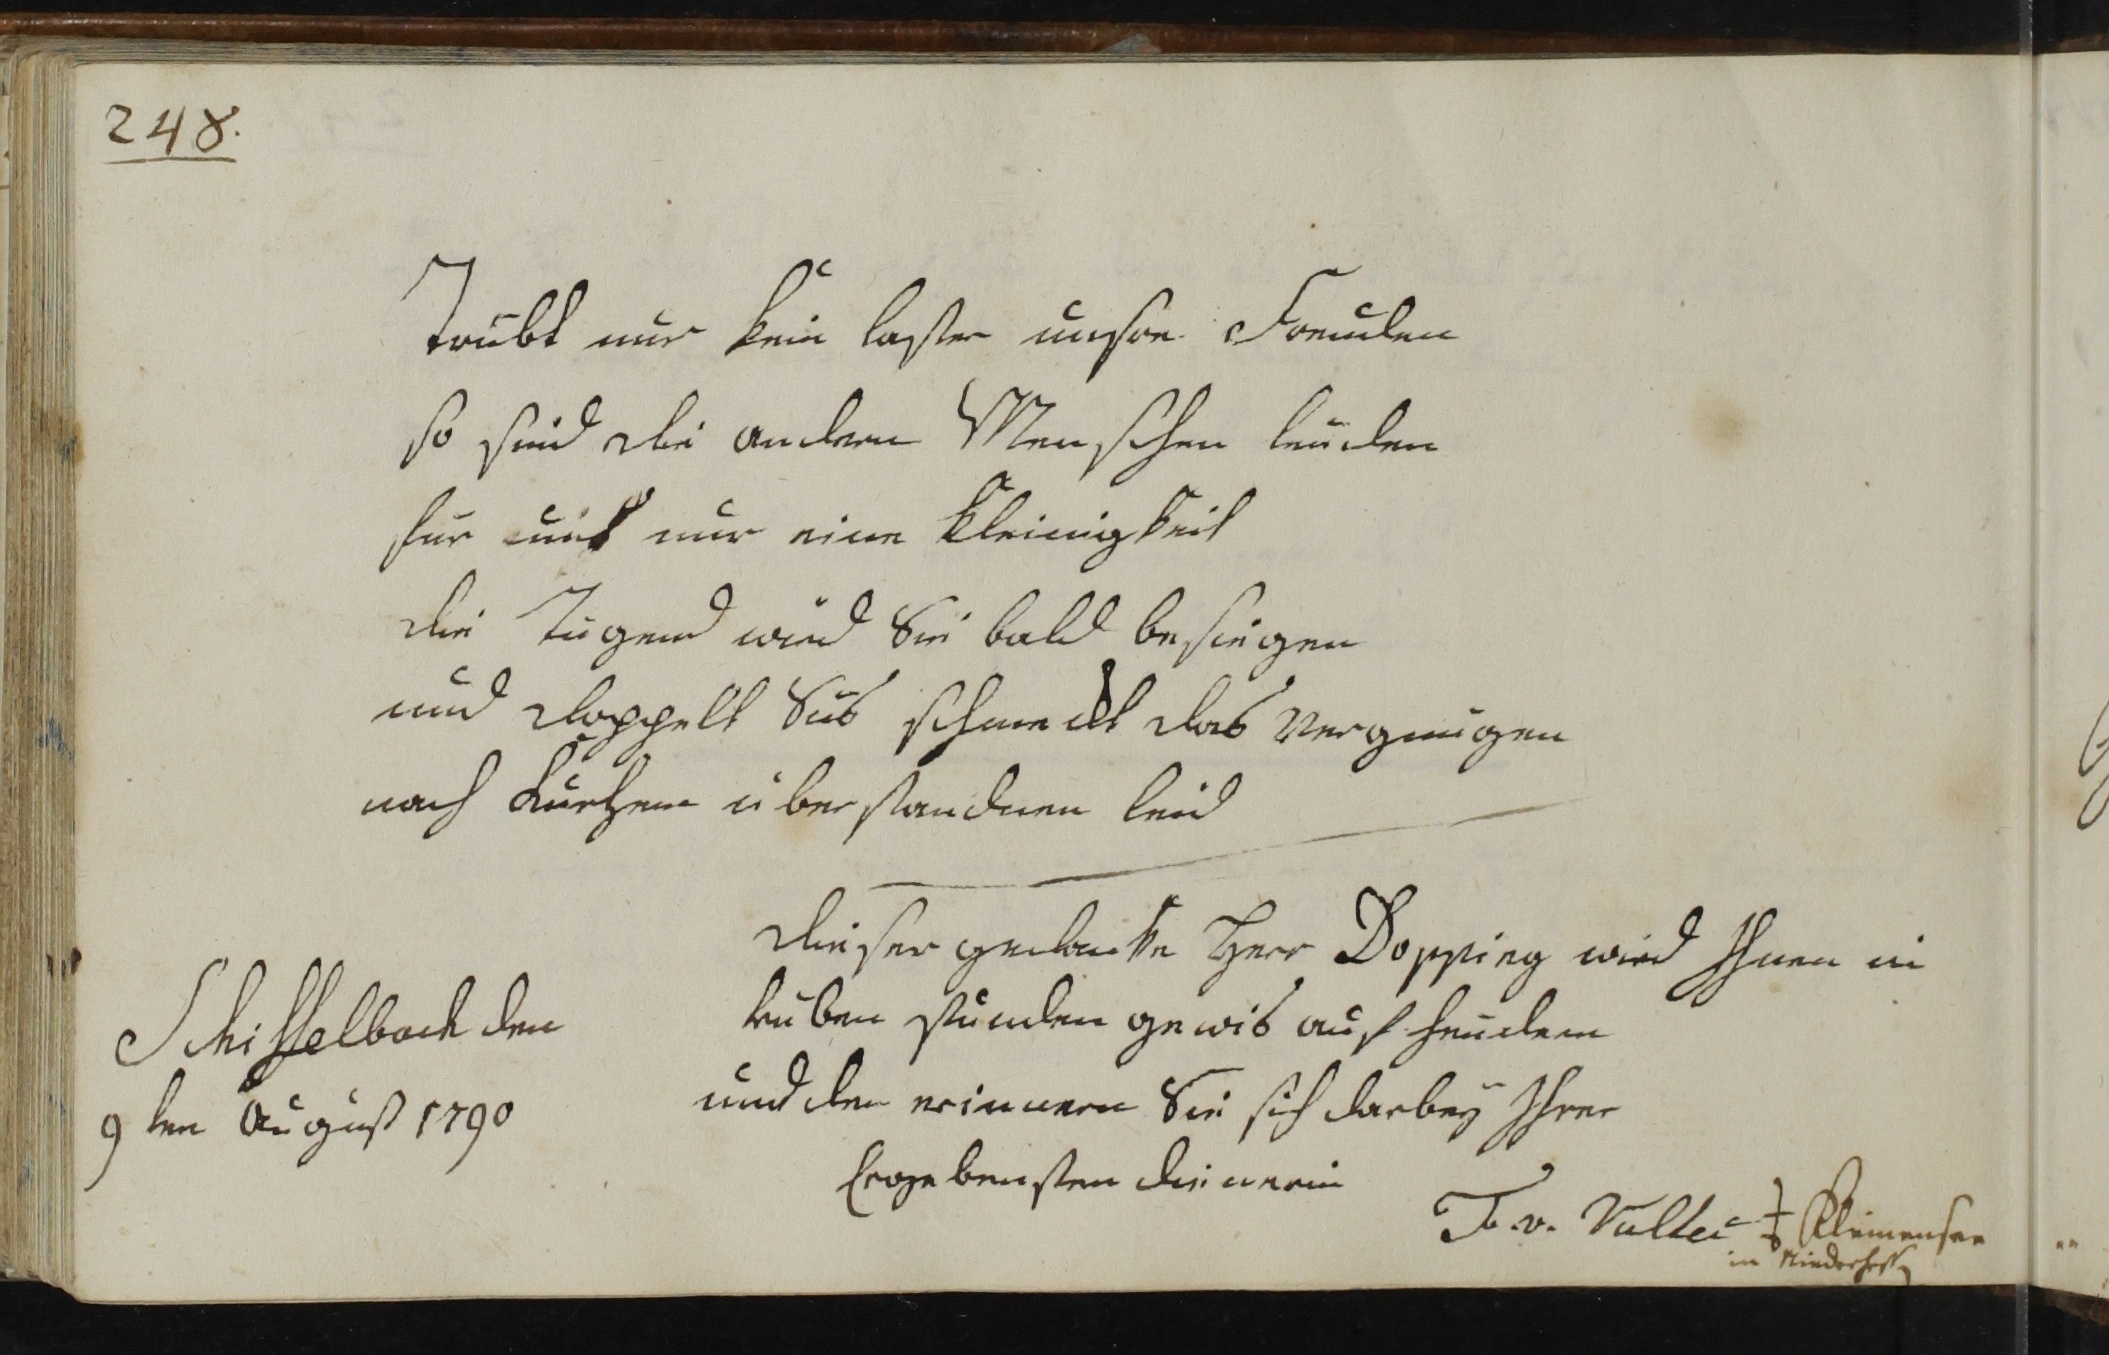 248.
Trübt nur kein laster unsre Freuden
so sind die andern Menschen leiden
für uns nur eine kleinigkeit
die Tugend wird Sie bald besiegen
und doppelt Süs schmeckt das vergnügen
nach kurtzem überstandnen leid
dieser gedancke Herr Dopping wird Ihnen in
trüben stunden gewis auf heidern
und den erinnern Sie sich darbey Ihrer
Ergebensten dienerin
Schiffelbach den
9ten August 1790
v. Vultée
in Niederhess